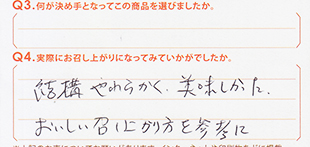 Q3.何が決め手となってこの商品を選びましたか。
Q4.実際にお召し上がりになってみていかがでしたか。
結構 やわらかく、美味しかった。
おいしい召し上がり方を参考に